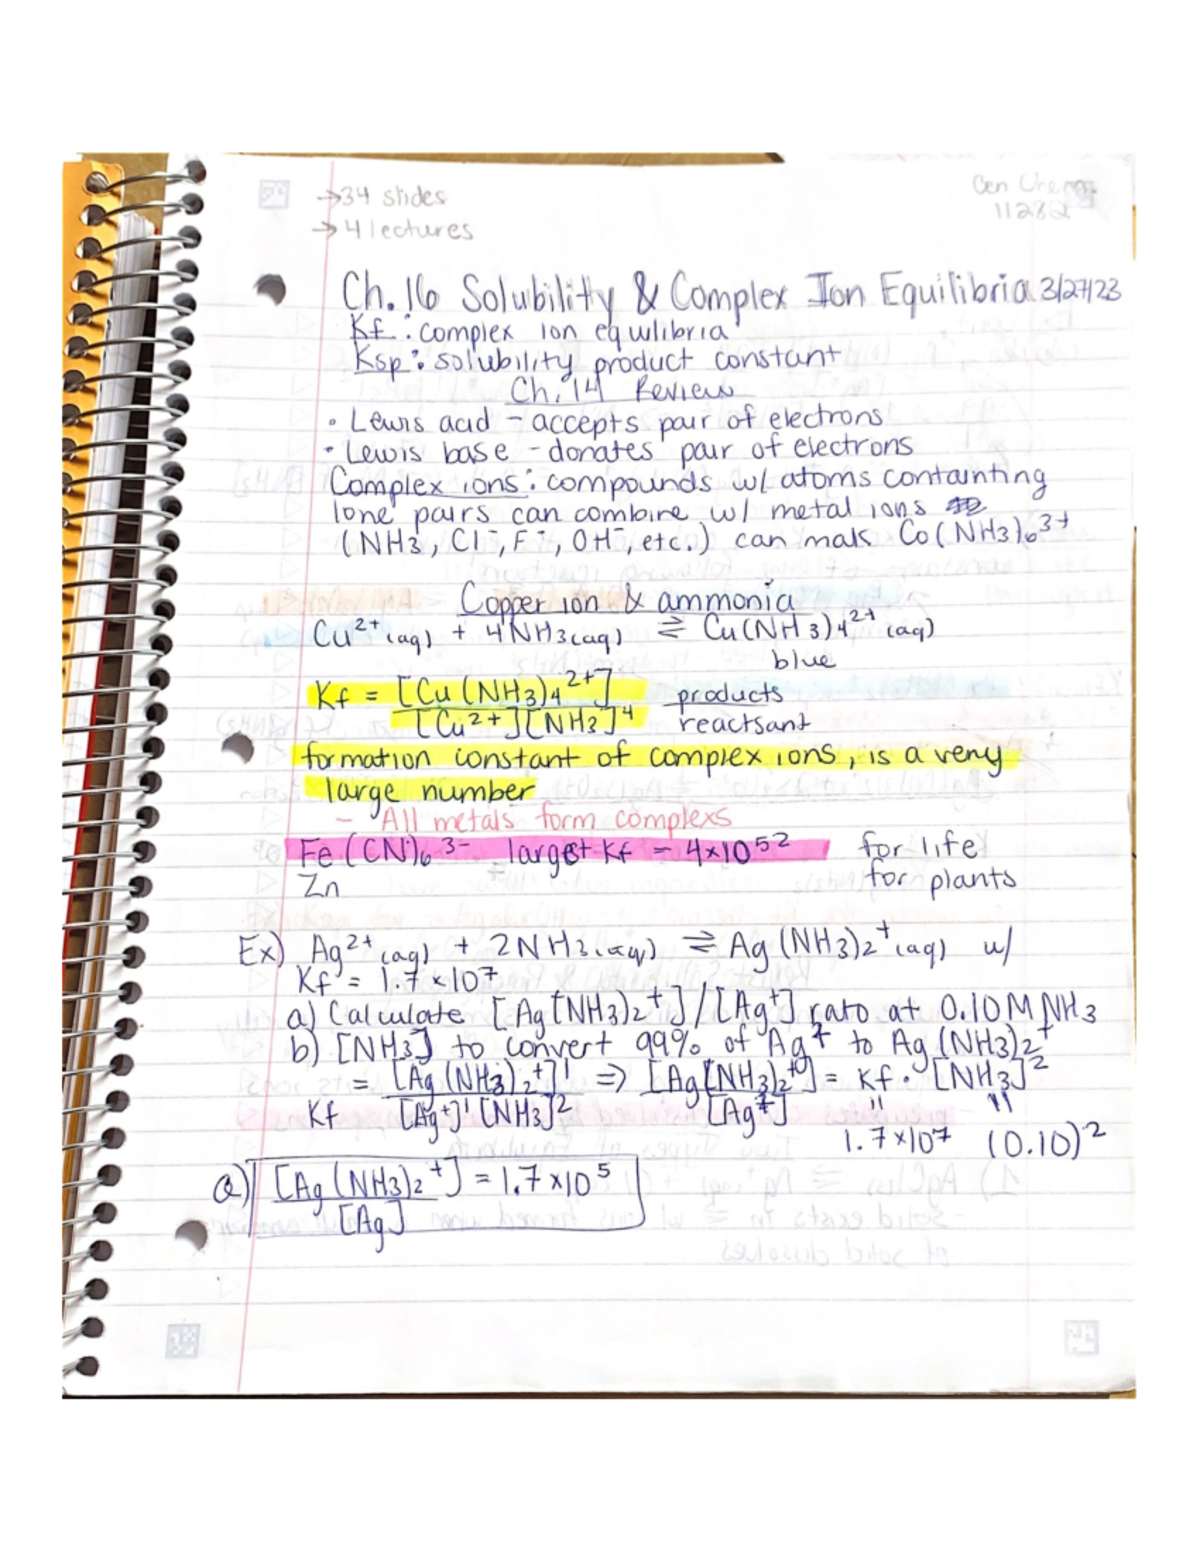 →34 slides
→4 lectures
Gen Chem
11282
Ch.16 Solubility & Complex Ion Equilibria 3/27/23
Kf : complex ion equilibria
Ksp : solubility product constant
Ch. 14 Review
• Lewis acid - accepts pair of electrons
• Lewis base - donates pair of electrons
Complex ions : compounds w/ atoms containting
lone pairs can combine w/ metal ions
(NH3, Cl⁻, F⁻, OH⁻, etc.) can mak Co(NH3)6³⁺
Copper ion & ammonia
Cu²⁺(aq) + 4NH3(aq) ⇌ Cu(NH3)4²⁺(aq)
blue
Kf = [Cu(NH3)4²⁺] products
[Cu²⁺][NH3]⁴ reactsant
formation constant of complex ions, is a very
large number
- All metals form complexs
Fe(CN)6³⁻ largest Kf = 4×10⁵² for life
Zn for plants
Ex) Ag²⁺(aq) + 2NH3(aq) ⇌ Ag(NH3)2⁺(aq) w/
Kf = 1.7×10⁷
a) Calculate [Ag(NH3)2⁺]/[Ag⁺] rato at 0.10M NH3
b) [NH3] to convert 99% of Ag⁺ to Ag(NH3)2⁺
= [Ag(NH3)2⁺]¹ ⇒ [Ag(NH3)2⁺] = Kf · [NH3]²
Kf [Ag⁺]¹[NH3]² [Ag⁺] " "
1.7×10⁷ (0.10)²
a) [Ag(NH3)2⁺] = 1.7×10⁵
[Ag]